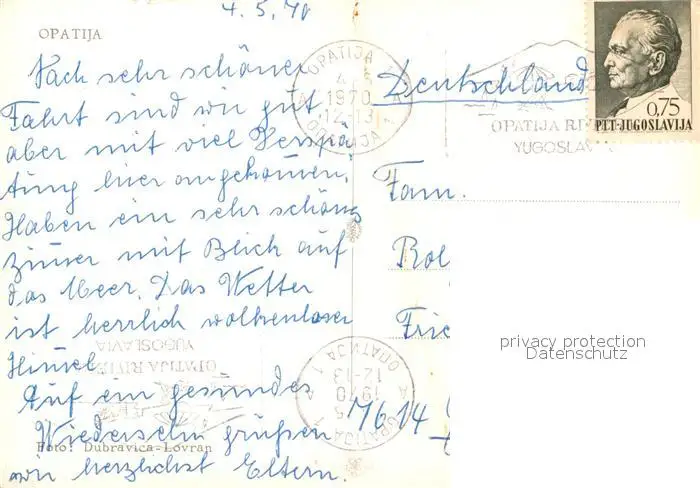 4.5.70
OPATIJA
Nach sehr schöner
Fahrt sind wir gut
aber mit viel Verspä
tung hier angekommen.
Haben ein sehr schönes
Zimmer mit Blick auf
das Meer. Das Wetter
ist herrlich wolkenloser
Himmel.
Auf ein gesundes
Wiedersehn grüßen
wir herzlichst Eltern.
Foto: Dubravica-Lovran
OPATIJA 1
1970
12-13
OPATIJA RIV
YUGOSLAV
0,75
PTT-JUGOSLAVIJA
Deutschland
Fam.
Rol
Frie
7614
privacy protection
Datenschutz
OPATIJA RIVI
YUGOSLAVIA
OPATIJA 1
1970
12-13